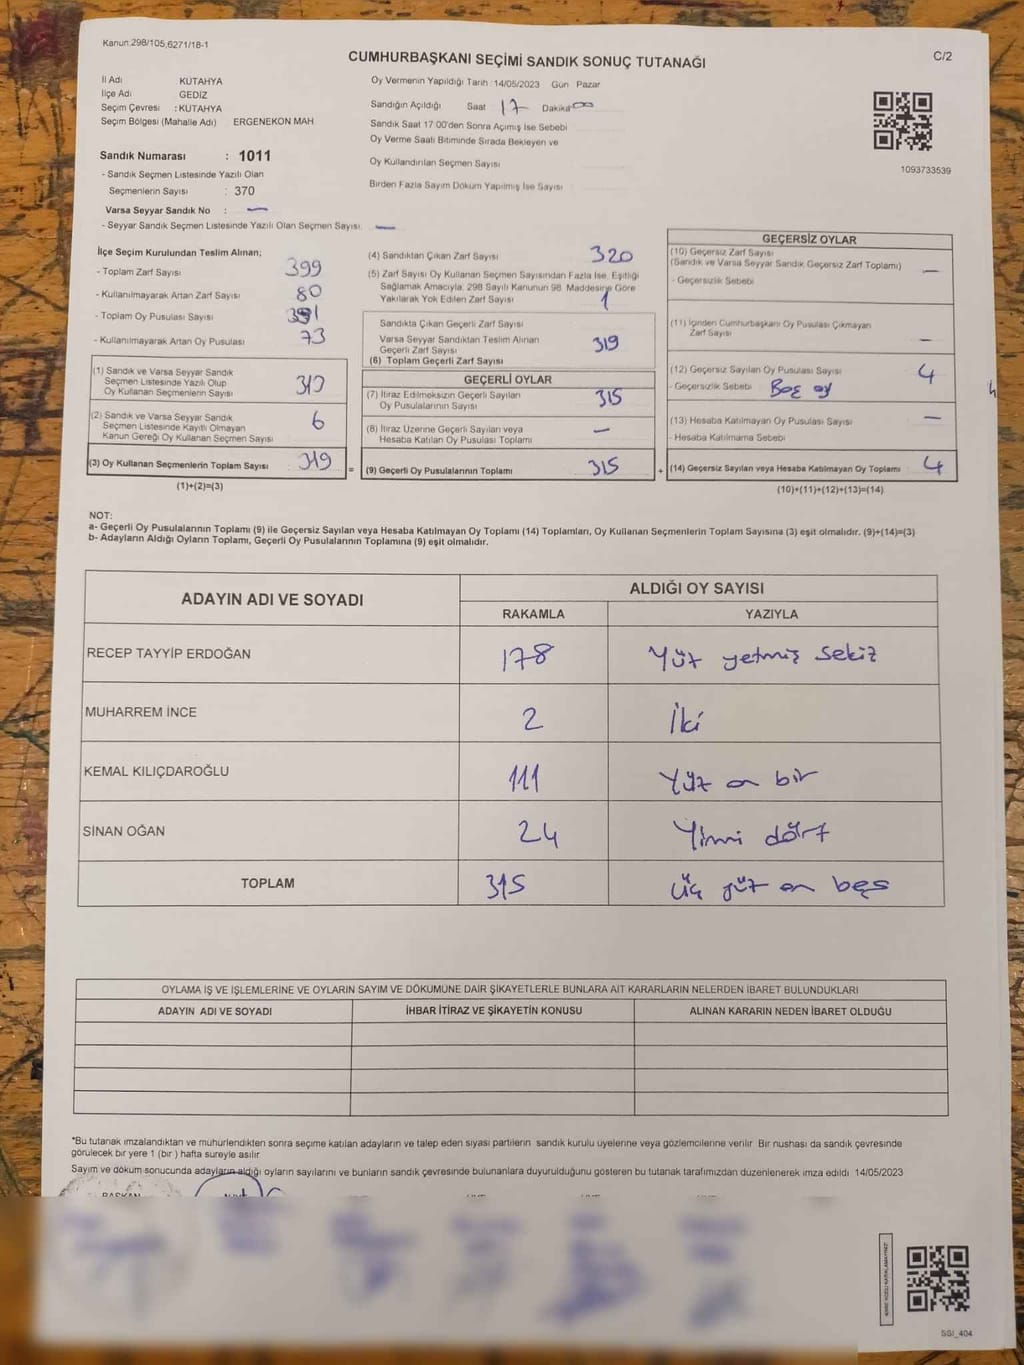 Kanun:298/105,6271/18-1
CUMHURBAŞKANI SEÇİMİ SANDIK SONUÇ TUTANAĞI
C/2
İl Adı KÜTAHYA
İlçe Adı GEDİZ
Seçim Çevresi : KÜTAHYA
Seçim Bölgesi (Mahalle Adı) ERGENEKON MAH.
Oy Vermenin Yapıldığı Tarih :14/05/2023 Gün Pazar
Sandığın Açıldığı Saat 17 Dakika 00
Sandık Saat 17:00'den Sonra Açımış İse Sebebi
Oy Verme Saati Bitiminde Sırada Bekleyen ve
Oy Kullandırılan Seçmen Sayısı
Birden Fazla Sayım Döküm Yapılmış İse Sayısı :
1093733539
Sandık Numarası : 1011
- Sandık Seçmen Listesinde Yazılı Olan
Seçmenlerin Sayısı : 370
Varsa Seyyar Sandık No : —
- Seyyar Sandık Seçmen Listesinde Yazılı Olan Seçmen Sayısı: —
İlçe Seçim Kurulundan Teslim Alınan;
- Toplam Zarf Sayısı 399
- Kullanılmayarak Artan Zarf Sayısı 80
- Toplam Oy Pusulası Sayısı
- Kullanılmayarak Artan Oy Pusulası 73
(1) Sandık ve Varsa Seyyar Sandık
Seçmen Listesinde Yazılı Olup
Oy Kullanan Seçmenlerin Sayısı
(2) Sandık ve Varsa Seyyar Sandık
Seçmen Listesinde Kayıtlı Olmayan
Kanun Gereği Oy Kullanan Seçmen Sayısı 6
(3) Oy Kullanan Seçmenlerin Toplam Sayısı 319
(1)+(2)=(3)
(4) Sandıktan Çıkan Zarf Sayısı 320
(5) Zarf Sayısı Oy Kullanan Seçmen Sayısından Fazla İse, Eşitliği
Sağlamak Amacıyla; 298 Sayılı Kanunun 98. Maddesine Göre
Yakılarak Yok Edilen Zarf Sayısı 1
Sandıkta Çıkan Geçerli Zarf Sayısı
Varsa Seyyar Sandıktan Teslim Alınan
Geçerli Zarf Sayısı 319
(6) Toplam Geçerli Zarf Sayısı
GEÇERLİ OYLAR
(7) İtiraz Edilmeksizin Geçerli Sayılan
Oy Pusulalarının Sayısı 315
(8) İtiraz Üzerine Geçerli Sayılan veya
Hesaba Katılan Oy Pusulası Toplamı —
= (9) Geçerli Oy Pusulalarının Toplamı 315
GEÇERSİZ OYLAR
(10) Geçersiz Zarf Sayısı
(Sandık ve Varsa Seyyar Sandık Geçersiz Zarf Toplamı) —
- Geçersizlik Sebebi
(11) İçinden Cumhurbaşkanı Oy Pusulası Çıkmayan
Zarf Sayısı —
(12) Geçersiz Sayılan Oy Pusulası Sayısı 4
- Geçersizlik Sebebi Boş oy
(13) Hesaba Katılmayan Oy Pusulası Sayısı —
- Hesaba Katılmama Sebebi
+ (14) Geçersiz Sayılan veya Hesaba Katılmayan Oy Toplamı 4
(10)+(11)+(12)+(13)=(14)
NOT:
a- Geçerli Oy Pusulalarının Toplamı (9) ile Geçersiz Sayılan veya Hesaba Katılmayan Oy Toplamı (14) Toplamları, Oy Kullanan Seçmenlerin Toplam Sayısına (3) eşit olmalıdır. (9)+(14)=(3)
b- Adayların Aldığı Oyların Toplamı, Geçerli Oy Pusulalarının Toplamına (9) eşit olmalıdır.
ADAYIN ADI VE SOYADI ALDIĞI OY SAYISI
RAKAMLA YAZIYLA
RECEP TAYYİP ERDOĞAN 178 Yüz yetmiş sekiz
MUHARREM İNCE 2 İki
KEMAL KILIÇDAROĞLU 111 Yüz on bir
SİNAN OĞAN 24 Yirmi dört
TOPLAM 315 Üç yüz on beş
OYLAMA İŞ VE İŞLEMLERİNE VE OYLARIN SAYIM VE DÖKÜMÜNE DAİR ŞİKAYETLERLE BUNLARA AİT KARARLARIN NELERDEN İBARET BULUNDUKLARI
ADAYIN ADI VE SOYADI İHBAR İTİRAZ VE ŞİKAYETİN KONUSU ALINAN KARARIN NEDEN İBARET OLDUĞU
*Bu tutanak imzalandıktan ve mühürlendikten sonra seçime katılan adayların ve talep eden siyasi partilerin sandık kurulu üyelerine veya gözlemcilerine verilir. Bir nüshası da sandık çevresinde
görülecek bir yere 1 (bir ) hafta süreyle asılır.
Sayım ve döküm sonucunda adayların aldığı oyların sayılarını ve bunların sandık çevresinde bulunanlara duyurulduğunu gösteren bu tutanak tarafımızdan düzenlenerek imza edildi. 14/05/2023
BAŞKAN
SSI_404